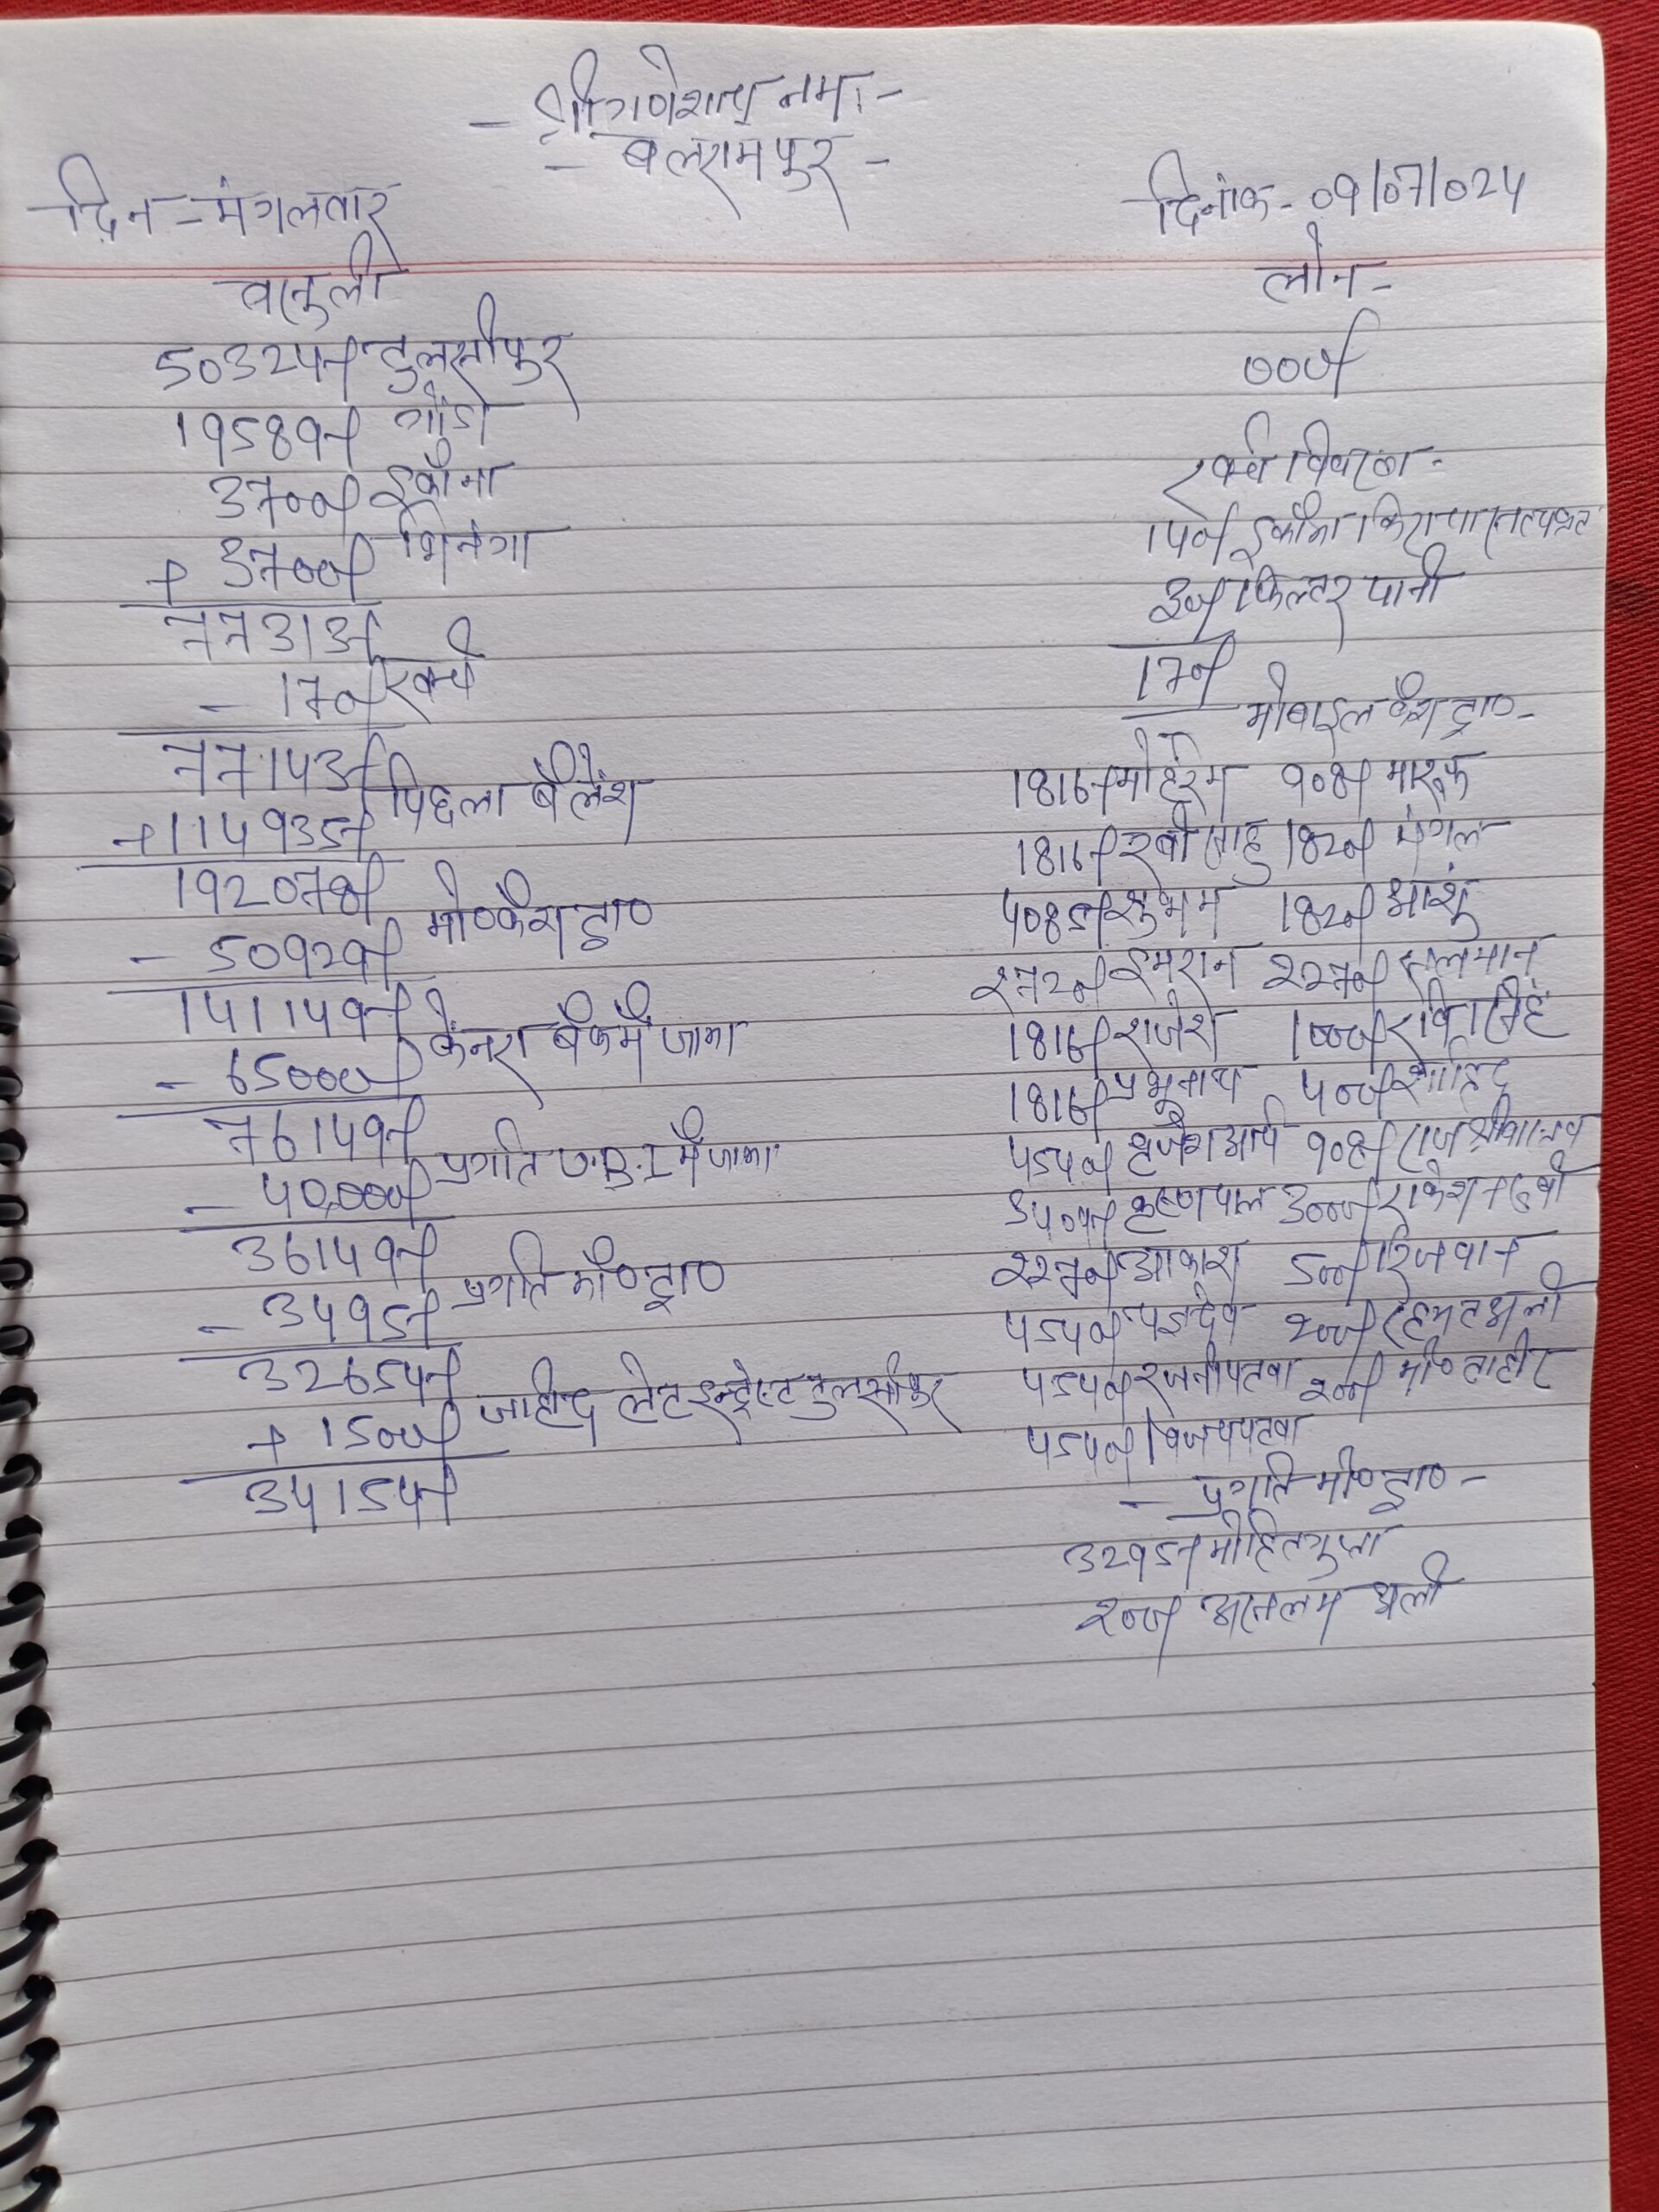 - श्री गणेशाय नमः -
- बलरामपुर -
दिन - मंगलवार
दिनांक - 09/07/024
वसुली
50324/- तुलसीपुर
19589/- गोंडा
3700/- इकौना
+ 3700/- भिनगा
77313/-
- 170/- खर्च
77143/-
+ 114935/- पिछला बैलेंश
192078/-
- 50929/- मो० कैश ट्रा०
141149/-
- 65000/- केनरा बैंक मैं जामा
76149/-
- 40,000/- प्रगति U.B.I मैं जामा
36149/-
- 3495/- प्रगति मो० ट्रा०
32654/-
+ 1500/- जाहीद लेट इन्ट्रेस्ट तुलसीपुर
34154/-
लोन -
000/-
खर्च विवरण -
140/- इकौना किराया
30/- फिल्टर पानी
170/-
मोबाइल कैश ट्रा० -
1816/- मोहर्रम 908/- मारूफ
1816/- रवी साहु 1820/- मंगल
4085/- शुभम 1820/- आशुं
2720/- इमरान 2270/- सलमान
1816/- राजेश 1000/- रवि सिंह
1816/- प्रभूनाथ 400/- शाहिद
4540/- बृजेश आर्य 908/- राज श्रीवास्तव
5404/- कृष्ण पाल 3000/- राकेश
2270/- आकाश 500/- रिजवान
4540/- 200/- रहमत अली
4540/- रजनी पटवा 200/- मो० ताहीर
4540/- विजय पटवा
- प्रगति मो० ट्रा० -
3295/- मोहित गुप्ता
200/- असलम अली